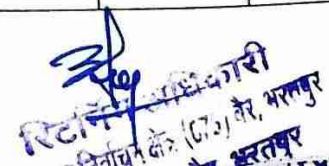 रिटर्निंग अधिकारी
निर्वाचन क्षेत्र (070) वैर, भरतपुर
वैर, भरतपुर